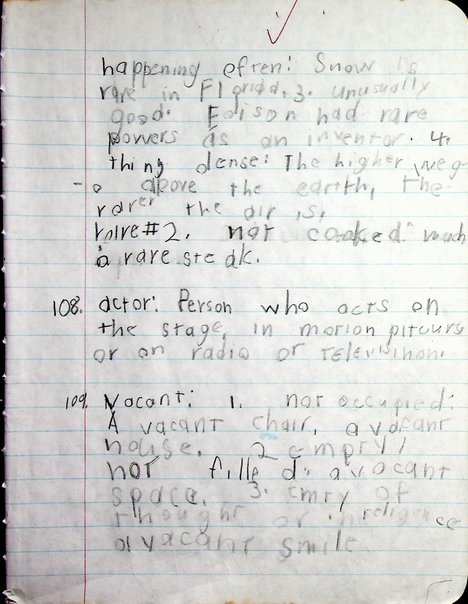 happening efren: Snow is
rare in Florida. 3. unusually
good: Edison had rare
powers as an inventor. 4.
thing dense: The higher we g-
- o above the earth, the
rarer the air is.
rare #2. not cooked much
a rare steak.
108. actor: Person who acts on
the stage, in motion pitcurs
or on radio or televisinon.
109. Vacant: 1. not occupied:
A vacant chair, a vacant
house. 2 empty;
not filled: a vacant
space. 3. emty of
thought or inteligence
a vacant smile